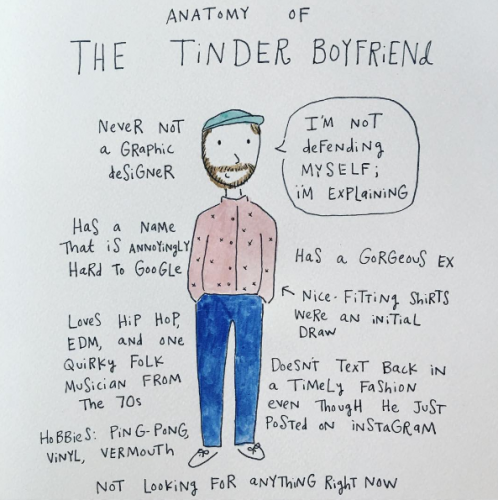 ANATOMY OF
THE TINDER BOYFRIEND
NEVER NOT
a GRAPHIC
DESIGNER
I'M NOT
defending
MYSELF;
i'M EXPLAINING
HAS a NAME
That iS ANNOYINGLY
HARD TO GOOGLE
HAS a GORGEOUS EX
NICE-FITTING SHIRTS
WERE AN INITIAL
DRAW
LOVES HIP HOP,
EDM, AND ONE
QUIRKY FOLK
MUSICIAN FROM
The 70s
DOESN'T TEXT BACK IN
a TIMELY FASHION
EVEN THOUGH HE JUST
POSTED ON INSTAGRAM
HOBBIES: PING-PONG,
VINYL, VERMOUTH
NOT LOOKING FOR ANYTHING RIGHT NOW